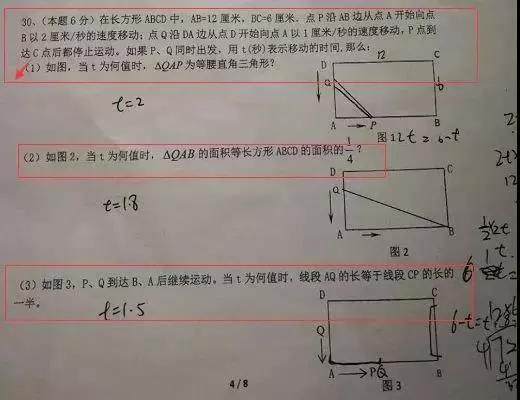 30、(本题6分)在长方形ABCD中，AB=12厘米，BC=6厘米．点P沿AB边从点A开始向点
B以2厘米/秒的速度移动；点Q沿DA边从点D开始向点A以1厘米/秒的速度移动，P点到
达C点后都停止运动。如果P、Q同时出发，用t(秒)表示移动的时间，那么：
(1)如图，当t为何值时，ΔQAP为等腰直角三角形？
D 12 C
Q 6
t=2
A P B
图1 2t=6-t
(2)如图2，当t为何值时，ΔQAB的面积等长方形ABCD的面积的1/4？
D C
Q
t=1.8
A B
图2
(3)如图3，P、Q到达B、A后继续运动。当t为何值时，线段AQ的长等于线段CP的长的
一半。
t=1.5
D C
Q
A P Q B
图3
6-t=
4/8